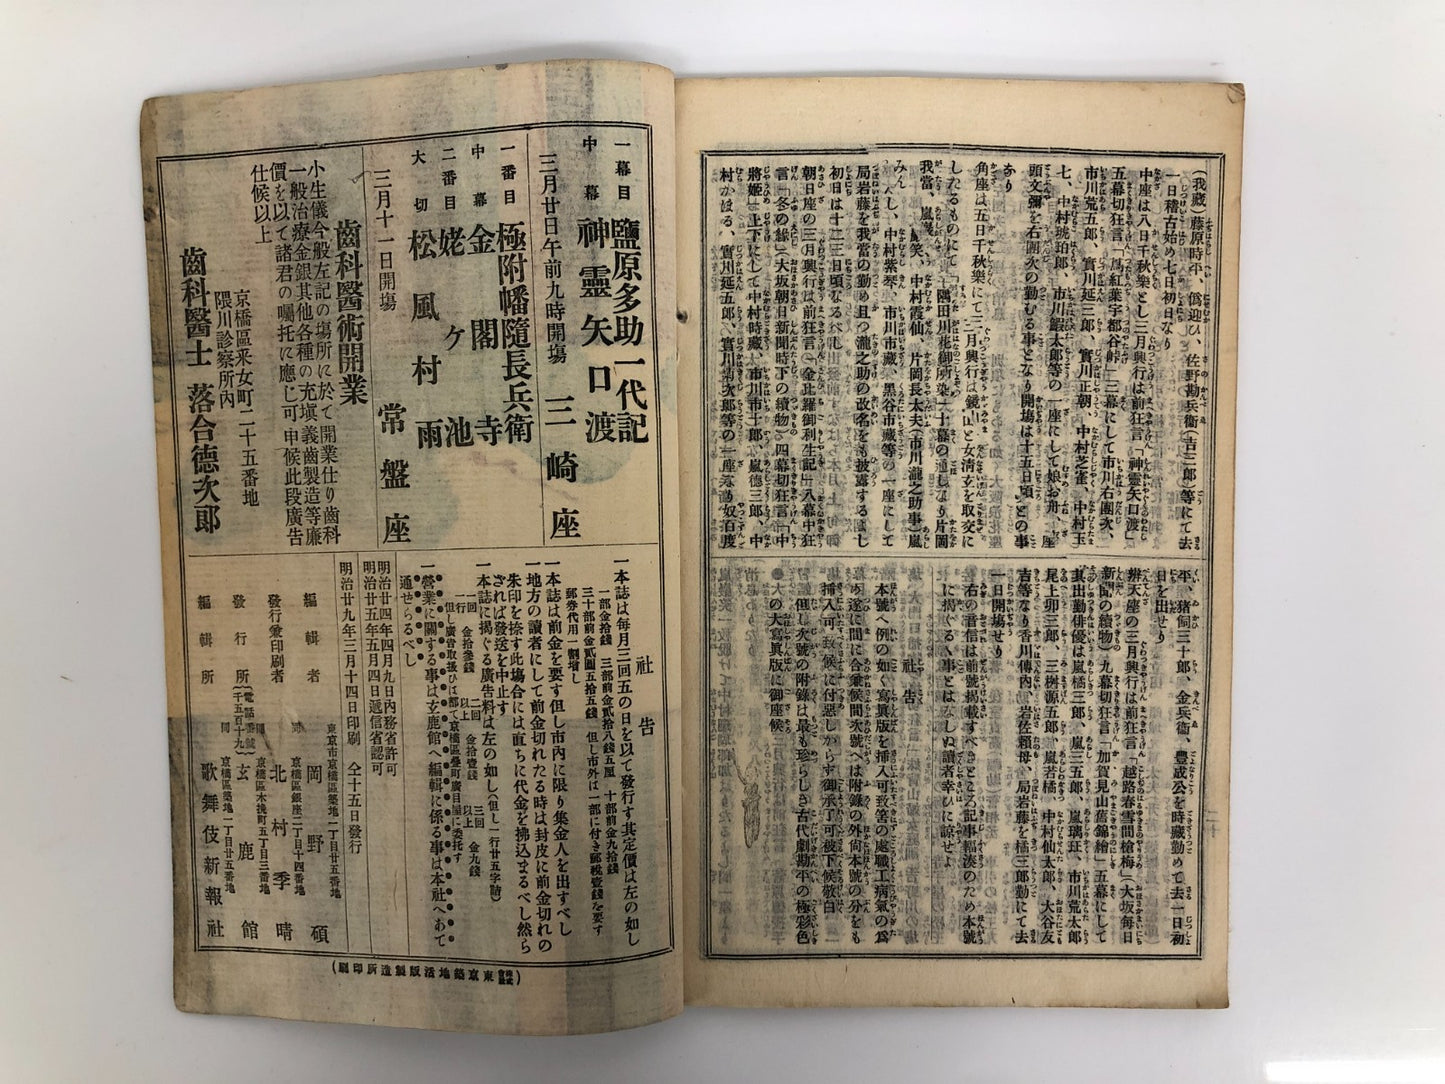 (我藏、藤原時平、僞迎ひ、佐野勘兵衞(吉三郎)等にて去
一日稽古始め七日初日なり
中座は八日千秋樂とし三月興行は前狂言「神靈矢口渡」
五幕切狂言「蔦紅葉宇都谷峠」三幕にして市川右團次、
市川荒五郎、實川延三郎、實川正朝、中村芝雀、中村玉
七、中村琥珀郎、市川鰕太郎等の一座にして娘お舟、座
頭文彌を右團次の勤むる事となり開塲は十五日頃との事
なり
角座は五日千秋樂にて三月興行は鏡山と女淸玄を取交に
したるものにて「隅田川花御所染」十幕の通しなり片岡
我當、嵐巖笑、中村霞仙、片岡長太夫(市川瀧之助事)嵐
みんし、中村紫琴、市川市藏、黑谷市藏等の一座にして
局岩藤を我當の勤め且つ瀧之助の改名をも披露するよし
初日は十二三日頃なるべし
朝日座の三月興行は前狂言「金比羅御利生記」八幕中狂
言「冬の緣」(大坂朝日新聞時下の續物)四幕切狂言「中
將姫」上下にして中村時藏、市川市十郎、嵐德三郎、中
村かほる、實川延五郎、實川菊次郎等の一座なり奴 度
平、猪飼三十郎、金兵衞、豐成公を時藏勤めて去一日初
日を出せり
辨天座の三月興行は前狂言「越路春雪間槍梅」(大坂每日
新聞の續物)九幕切狂言「加賀見山舊錦繪」五幕にして
其出勤俳優は嵐橘三郎、嵐三五郎、嵐璃珏、市川荒太郎
尾上卯三郎、三桝源五郎、嵐岩橘、中村仙太郎、大谷友
吉等なり香川傳內、岩佐賴母、局岩藤を橘三郎勤にて去
一日開塲せり
右の書信は前號揭載すべきところ記事輻湊のため本號
に揭ぐる事とはなしぬ讀者幸ひに諒せよ
社告
本號へ例の如く寫眞版を挿入可致筈の處職工病氣の爲
め遂に間に合兼候間次號へは附錄の外尙本號の分をも
挿入可致候に付惡しからず御承了可被下候敬白
但し次號の附錄は最も珍らしき古代劇勘平の極彩色
の大寫眞版に御座候
一幕目 鹽原多助一代記
中幕 神靈矢口渡
三月廿日午前九時開塲 三崎座
一番目 極附幡隨長兵衛
中幕 金閣寺
二番目 姥ヶ池
大切 松風村雨
三月十一日開塲 常盤座
齒科醫術開業
小生儀今般左記の塲所に於て開業仕り齒科
一般治療金銀其他各種の充塡義齒製造等廉
價を以て諸君の囑托に應じ可申候此段廣告
仕候以上
京橋區釆女町二十五番地
隈川診察所內
齒科醫士 落合德次郎
社告
一本誌は每月三回五の日を以て發行す其定價は左の如し
一部金拾錢 三部前金貳拾八錢五厘 十部前金九拾錢
三十部前金貳圓五拾五錢 但し市外は一部に付き郵稅壹錢を要す
郵券代用一割增し
一本誌は前金を要す但し市內に限り集金人を出すべし
一地方の讀者にして前金切れたる時は封皮に前金切れの
朱印を捺す此塲合には直ちに代金を拂込まるべし然ら
ざれば發送を中止す
一本誌に揭ぐる廣告料は左の如し(但し一行廿五字詰)
一回一行 金拾參錢 二回以上 金拾壹錢 三回以上 金九錢
但し廣告取扱ひは都て京橋區疊町廣目屋に委托す
一營業に關する事は玄鹿館へ編輯に係る事は本社へあて
通せらるべし
明治廿四年四月九日內務省許可
明治廿五年五月四日遞信省認可
明治廿九年三月十四日印刷 仝十五日發行
東京市京橋區築地一丁目廿五番地
編輯者 岡野碩
京橋區銀座二丁目十四番地
發行兼印刷者 北村季晴
京橋區木挽町五丁目三番地
發行所 玄鹿館
(電話番號二千五百十九)
京橋區築地一丁目廿五番地
編輯所 歌舞伎新報社
(株式會社東京築地活版製造所印刷)